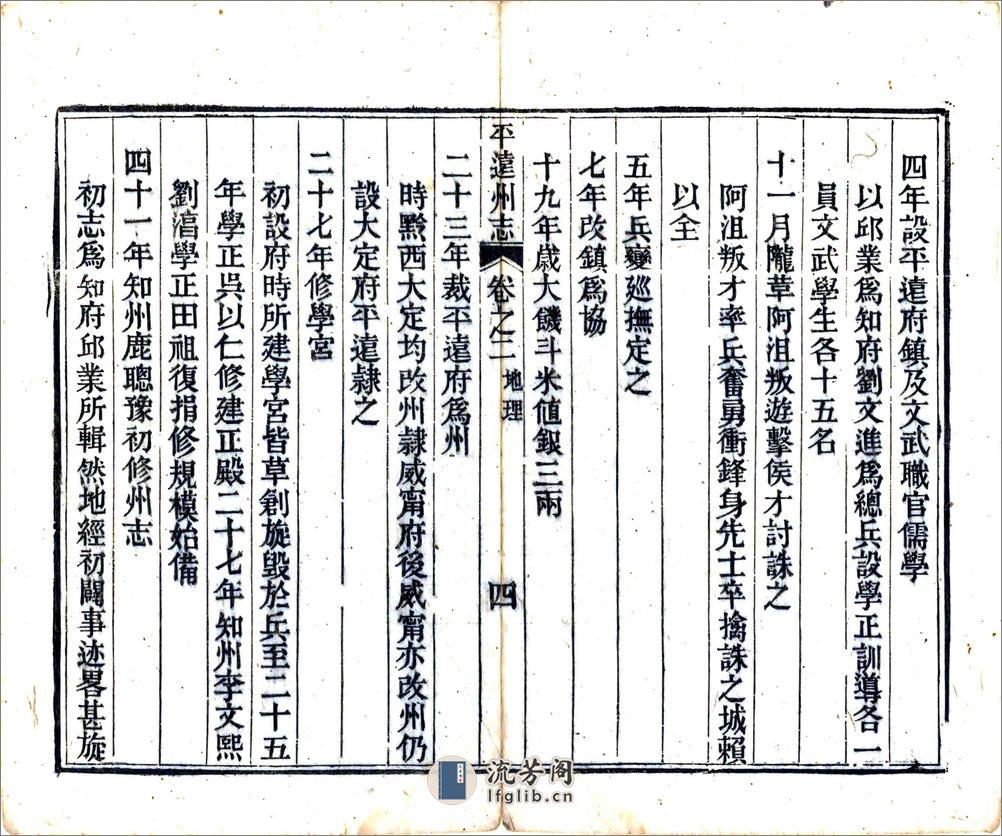 四年設平遠府鎮及文武職官儒學
以邱業爲知府劉文進爲總兵設學正訓導各一
員文武學生各十五名
十一月隴草阿沮叛遊擊侯才討誅之
阿沮叛才率兵奮勇衝鋒身先士卒擒誅之城賴
以全
五年兵變廵撫定之
七年改鎮爲協
十九年歲大饑斗米値銀三兩
平遠州志 卷之二 地理 四
二十三年裁平遠府爲州
時黔西大定均改州隸威甯府後威甯亦改州仍
設大定府平遠隸之
二十七年修學宮
初設府時所建學宮皆草創旋毀於兵至二十五
年學正吳以仁修建正殿二十七年知州李文熙
劉㵂學正田祖復捐修規模始備
四十一年知州鹿聰豫初修州志
初志爲知府邱業所輯然地經初闢事迹畧甚旋
流芳阁
lfglib.cn